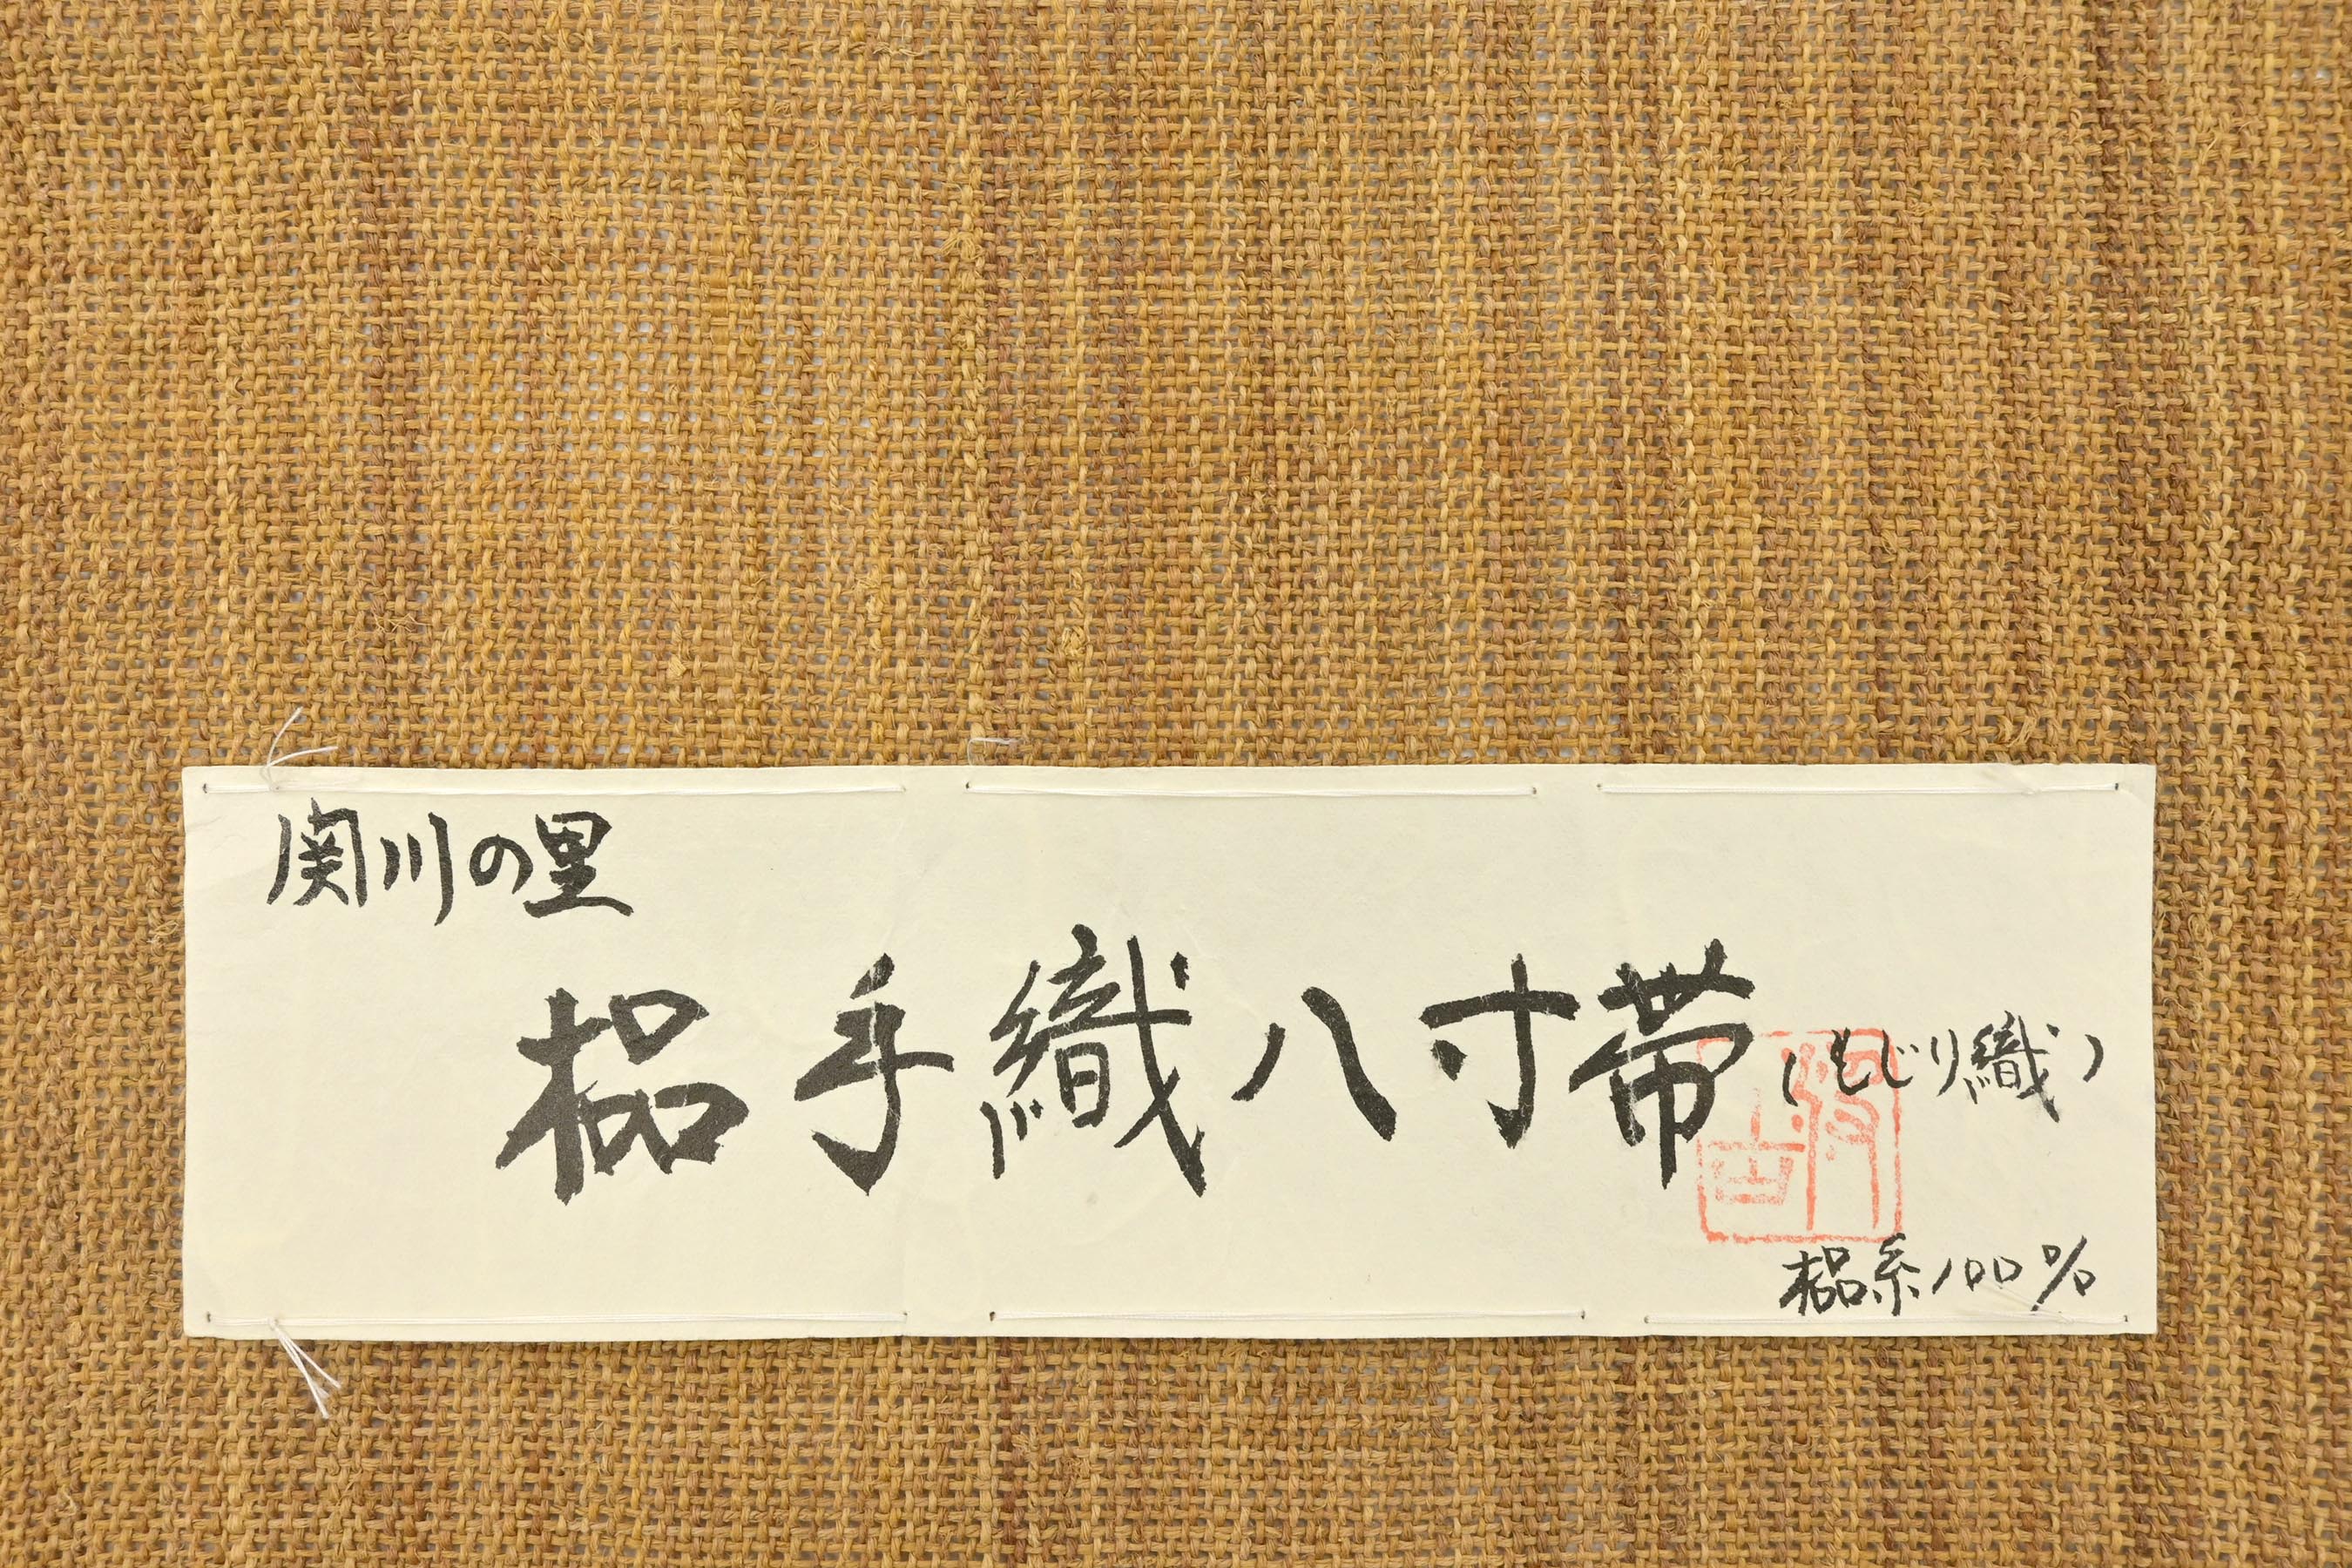 関川の里
榀手織八寸帯(もじり織)
榀糸100%